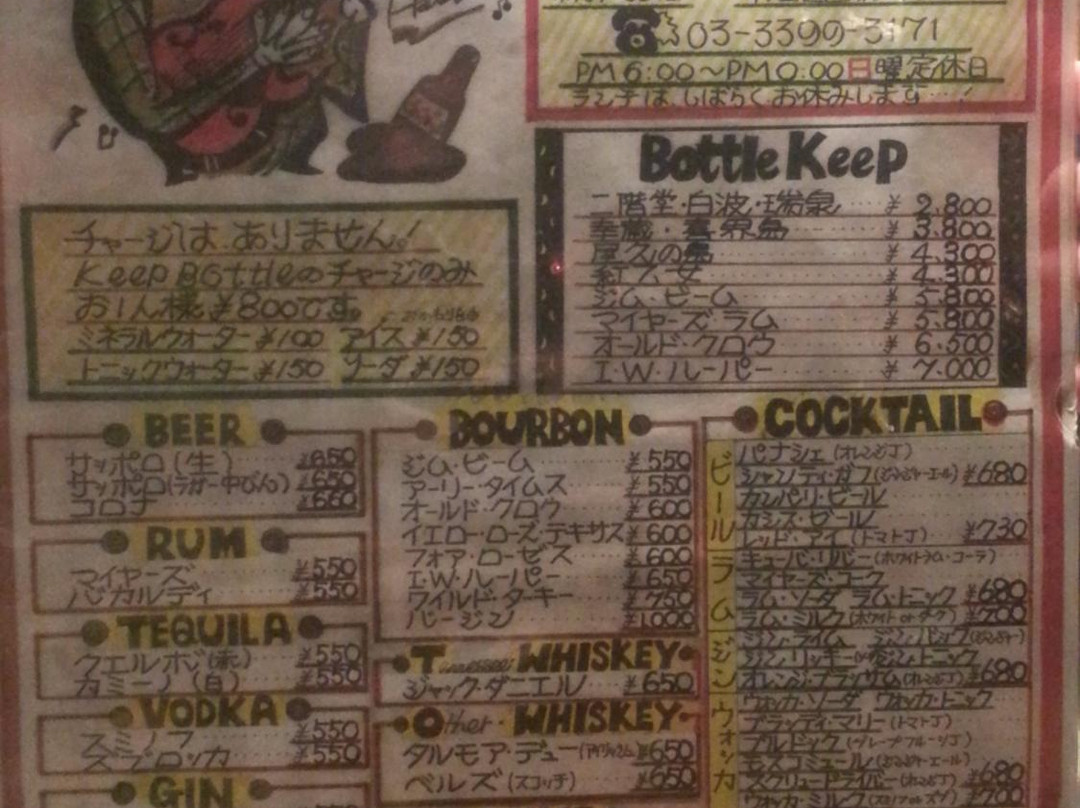 03-3390-3171
PM 6:00〜PM 0:00 日曜定休日
ランチは、しばらくお休みします
Bottle Keep
二階堂・白波・瑞泉 ¥ 2.800
喜界島 ¥ 3.800
屋久の島 ¥ 4.300
紅乙女 ¥ 4.300
ジム・ビーム ¥ 5.800
マイヤーズ・ラム ¥ 5.800
オールド・クロウ ¥ 6.500
I.W.ハーパー ¥ 7.000
チャージは、ありません!
Keep Bottleのチャージのみ
お1人様¥800です。
ミネラルウォーター¥100 アイス¥150
トニックウォーター¥150 ソーダ¥150
BEER
サッポロ(生) ¥650
サッポロ(ラガー中びん) ¥650
コロナ ¥660
RUM
マイヤーズ ¥550
バカルディ ¥550
TEQUILA
クエルボ(赤) ¥550
カミーノ(白) ¥550
VODKA
スミノフ ¥550
ズブロッカ ¥550
GIN
BOURBON
ジム・ビーム ¥550
アーリー・タイムス ¥550
オールド・クロウ ¥600
イエロー・ローズ・テキサス ¥600
フォア・ローゼス ¥600
I.W.ハーパー ¥650
ワイルド・ターキー ¥750
バージン ¥1000
Tennessee WHISKEY
ジャック・ダニエル ¥650
Other WHISKEY
タルモア・デュー ¥650
ベルズ(スコッチ) ¥650
COCKTAIL
ビール
パナシェ(オレンジJ)
シャンディ・ガフ(ジンジャーエール) ¥680
カンパリ・ビール
カシス・ビール
レッド・アイ(トマトJ) ¥730
ラム
キューバ・リバー(ホワイトラム・コーラ)
マイヤーズ・コーク
ラム・ソーダ ラム・トニック ¥680
ラム・ミルク(ホワイト or ダーク) ¥700
ジン
ジン・ライム ジン・バック(ジンジャー)
ジン・リッキー ジン・トニック
オレンジ・ブラッサム(オレンジJ) ¥680
ウォッカ
ウォッカ・ソーダ ウォッカ・トニック
ブラッディ・マリー(トマトJ)
ブルドック(グレープフルーツJ)
モスコミュール(ジンジャーエール)
スクリュードライバー(オレンジJ) ¥680
ウォッカ・ミルク ¥700